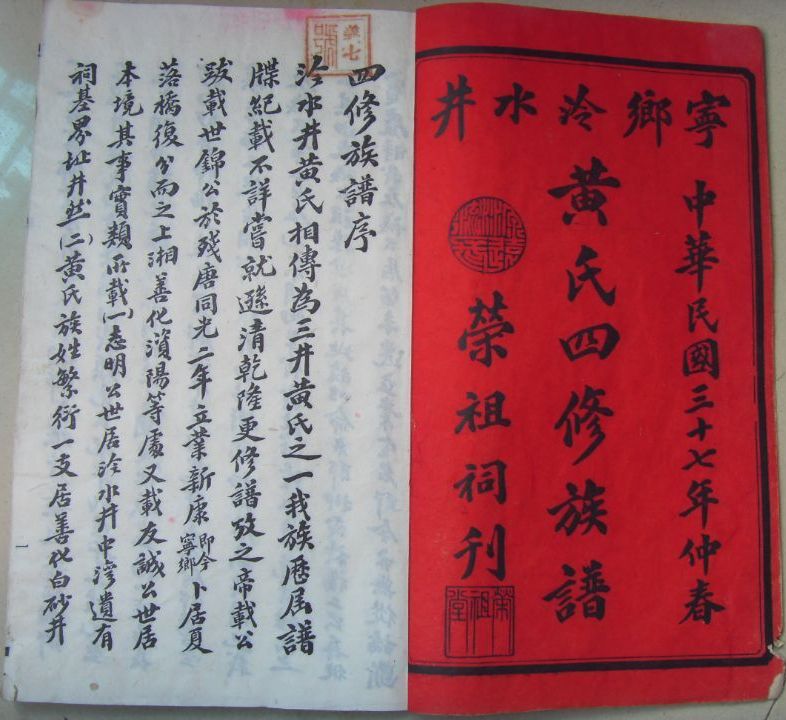 寧鄉泠水井
中華民國三十七年仲春
黃氏四修族譜
榮祖祠刊
榮祖堂
七號
四修族譜序
泠水井黃氏相傳為三井黃氏之一我族歷屆譜
牒紀載不詳嘗就遜清乾隆更修譜攷之帝載公
跋載世錦公於殘唐同光二年立業新康即今寧鄉卜居夏
落橋復分而之上湘善化澬陽等處又載友誠公世居
本境其事實類所載(一)志明公世居泠水井中灣遺有
祠基界址井然(二)黃氏族姓繁衍一支居善化白砂井